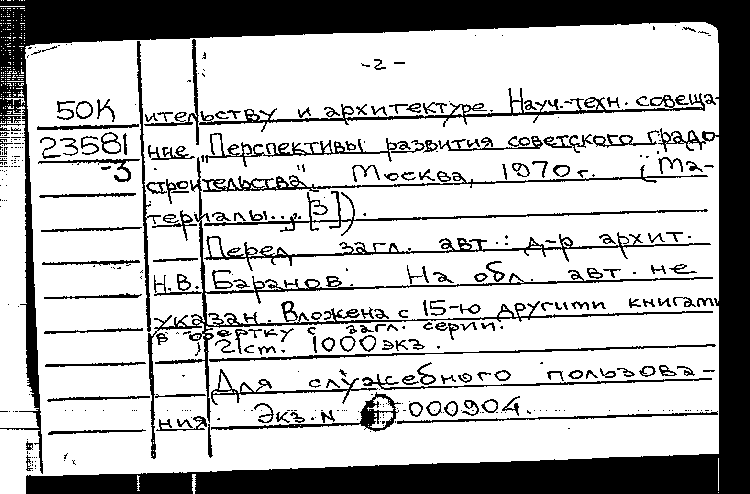 -2-
50К ительству и архитектуре. Науч.-техн. совеща-
23581 ние „Перспективы развития советского градо-
-3 строительства". Москва, 1970г. (Ма-
териалы... [3]).
Перед загл. авт.: д-р архит.
Н.В. Баранов. На обл. авт. не
указан. Вложена с 15-ю другими книгами
в обертку с загл. серии.
21ст. 1000экз.
Для служебного пользова-
ния. Экз. N 000904.